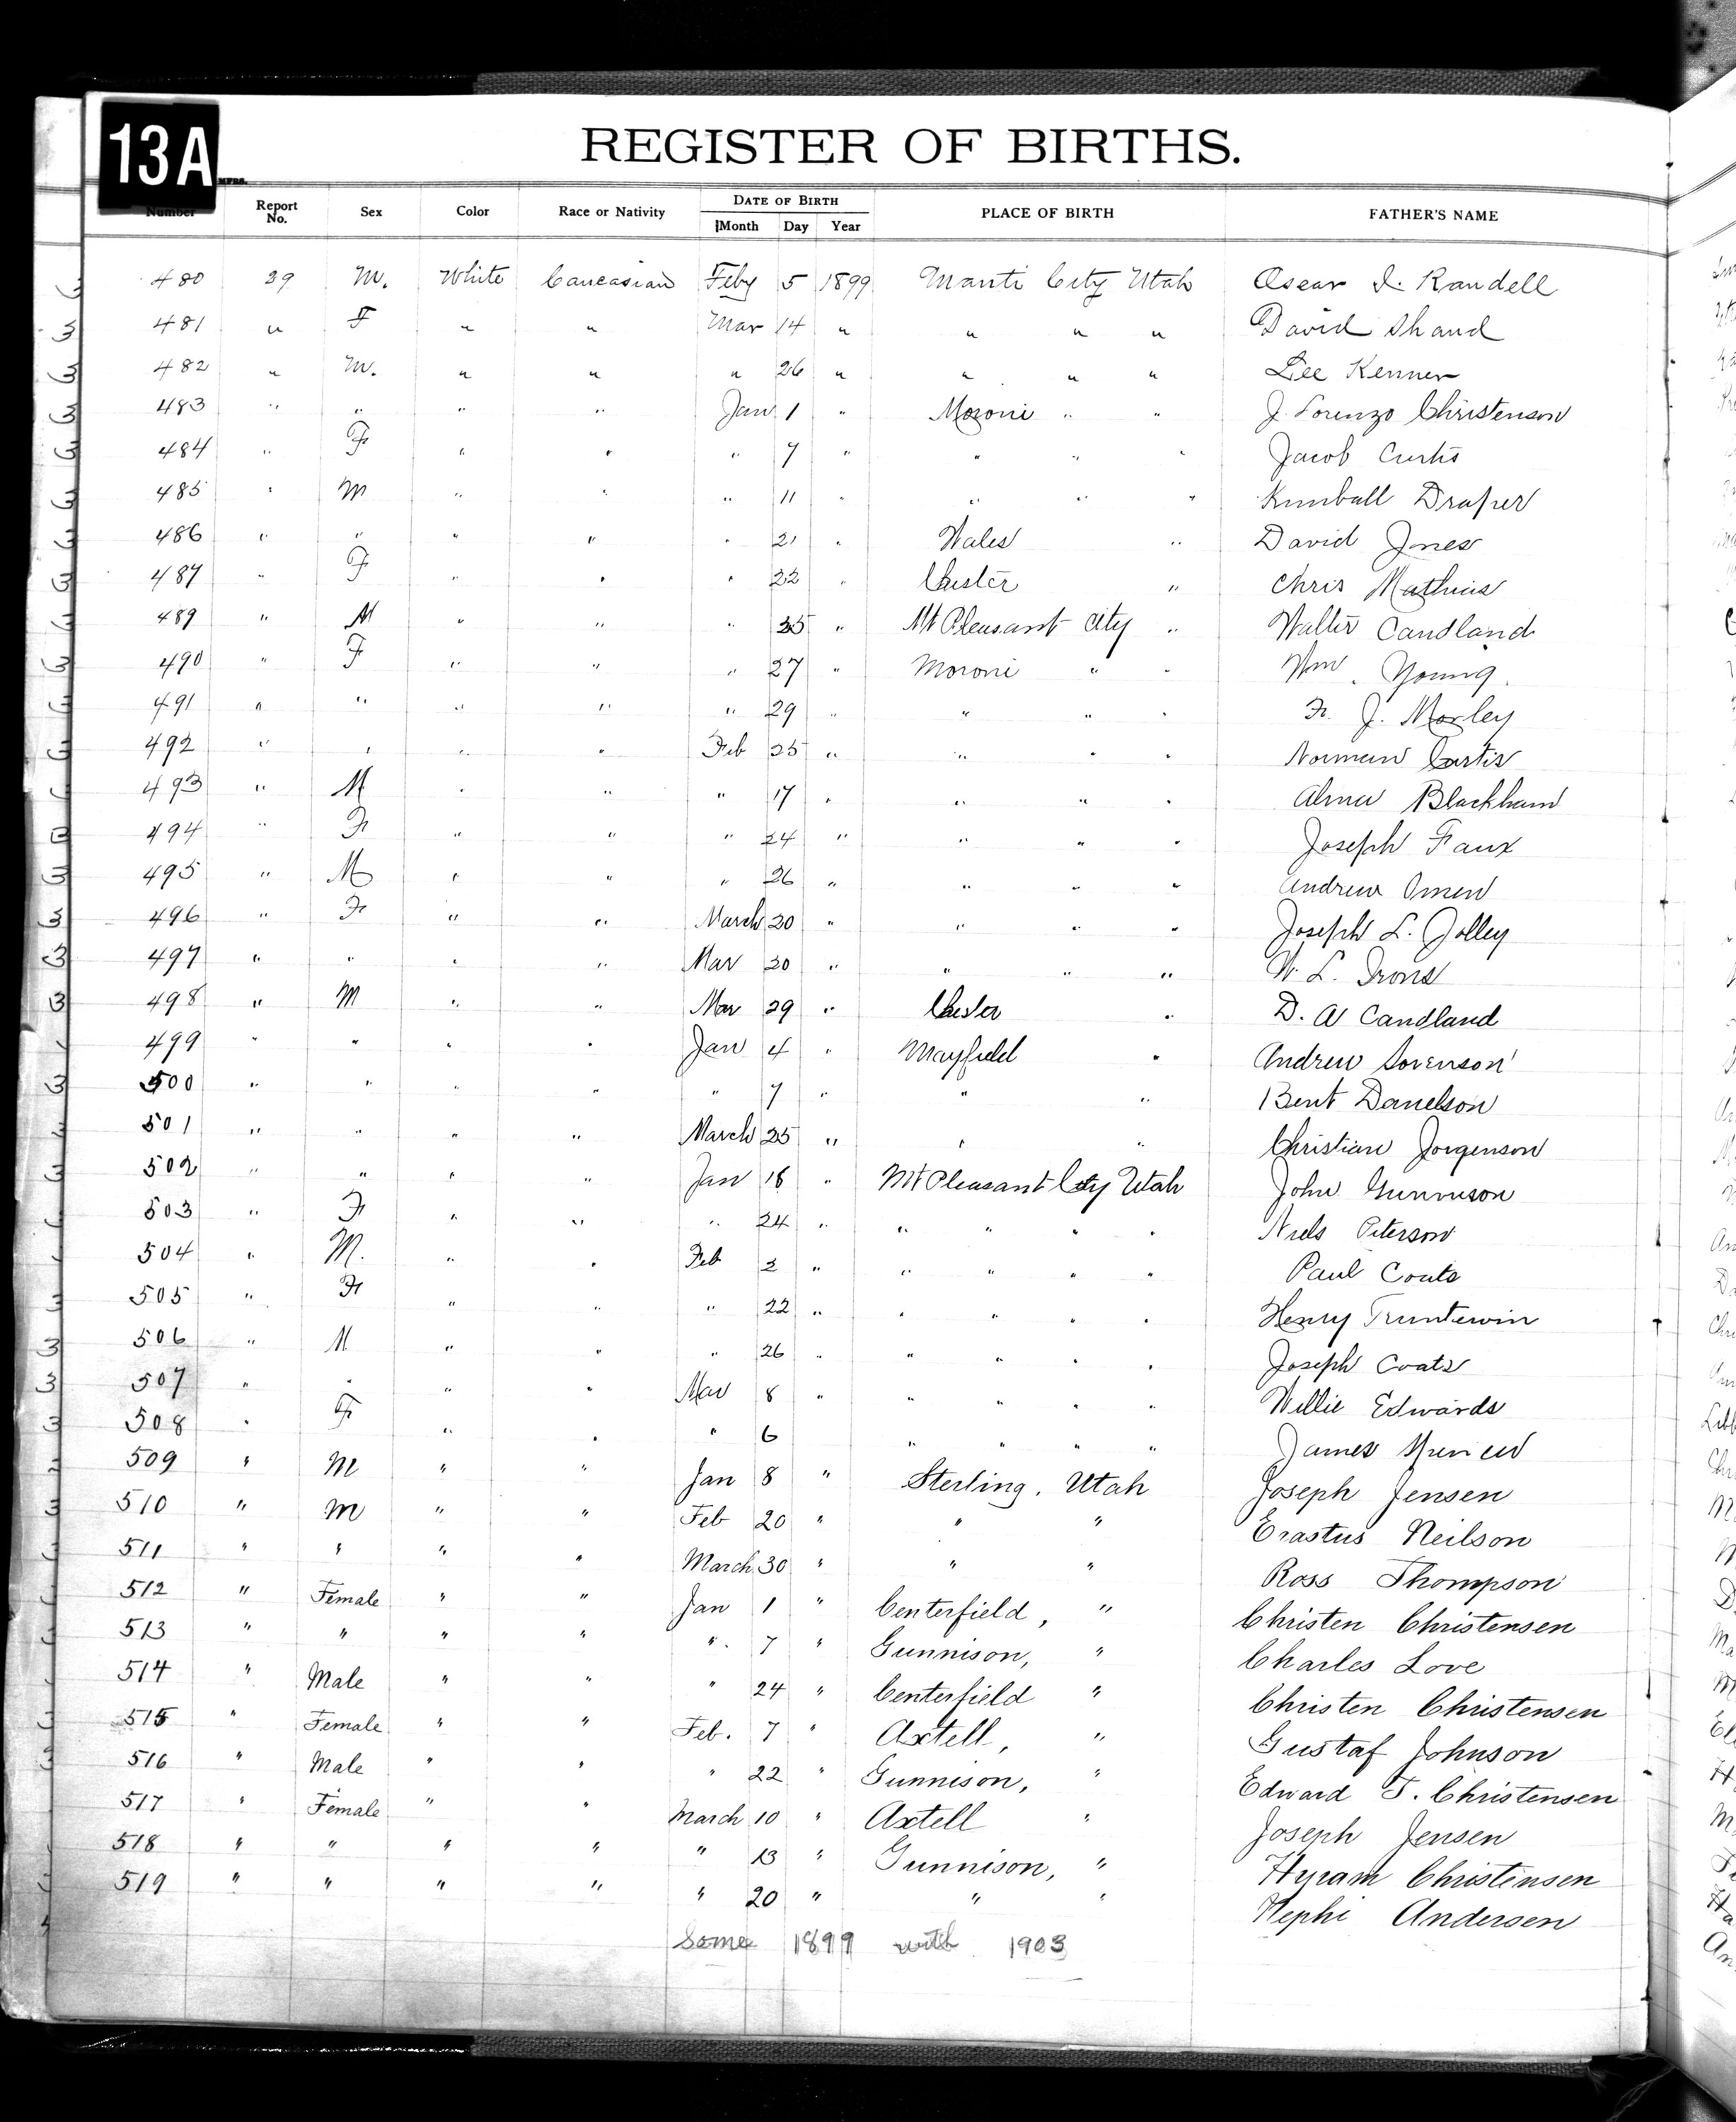 13A
REGISTER OF BIRTHS.
Number Report No. Sex Color Race or Nativity DATE OF BIRTH Month Day Year PLACE OF BIRTH FATHER'S NAME
480 29 M. White Caucasian Feby 5 1899 Manti City Utah Oscar I. Randell
481 " F " " Mar 14 " " " " David Shand
482 " M. " " " 26 " " " " Lee Kenner
483 " " " " Jan 1 " Moroni " " J. Lorenzo Christenson
484 " F " " " 7 " " " " Jacob Curtis
485 " M " " " 11 " " " " Kimball Draper
486 " " " " " 21 " Wales " David Jones
487 " F " " " 22 " Chester " Chris Mathias
489 " M " " " 25 " Mt Pleasant City " Walter Candland
490 " F " " " 27 " Moroni " " Wm. Young
491 " " " " " 29 " " " " J. Morley
492 " " " " Feb 25 " " " " Norman Curtis
493 " M " " " 17 " " " " Alma Blackham
494 " F " " " 24 " " " " Joseph Faux
495 " M " " " 26 " " " " Andrew Omen
496 " F " " March 20 " " " " Joseph L. Jolley
497 " " " " Mar 20 " " " " W. L. Irons
498 " M " " Mar 29 " Chester " D. A Candland
499 " " " " Jan 4 " Mayfield " Andrew Sorenson
500 " " " " " 7 " " " Bent Danelson
501 " " " " March 25 " " " Christian Jorgenson
502 " " " " Jan 18 " Mt Pleasant City Utah John Gunnuson
503 " F " " " 24 " " " " " Niels Peterson
504 " M. " " Feb 2 " " " " " Paul Coats
505 " F " " " 22 " " " " " Henry Truntewin
506 " M " " " 26 " " " " " Joseph Coats
507 " " " " Mar 8 " " " " " Willie Edwards
508 " F " " " 6 " " " " James Spencer
509 " M " " Jan 8 " Sterling, Utah Joseph Jensen
510 " M " " Feb 20 " " " Erastus Neilson
511 " " " " March 30 " " " Ross Thompson
512 " Female " " Jan 1 " Centerfield, " Christen Christensen
513 " " " " " 7 " Gunnison, " Charles Love
514 " Male " " " 24 " Centerfield " Christen Christensen
515 " Female " " Feb. 7 " Axtell, " Gustaf Johnson
516 " Male " " " 22 " Gunnison, " Edward T. Christensen
517 " Female " " March 10 " Axtell " Joseph Jensen
518 " " " " " 13 " Gunnison, " Hyram Christensen
519 " " " " " 20 " " " Nephi Andersen
Some 1899 with 1903